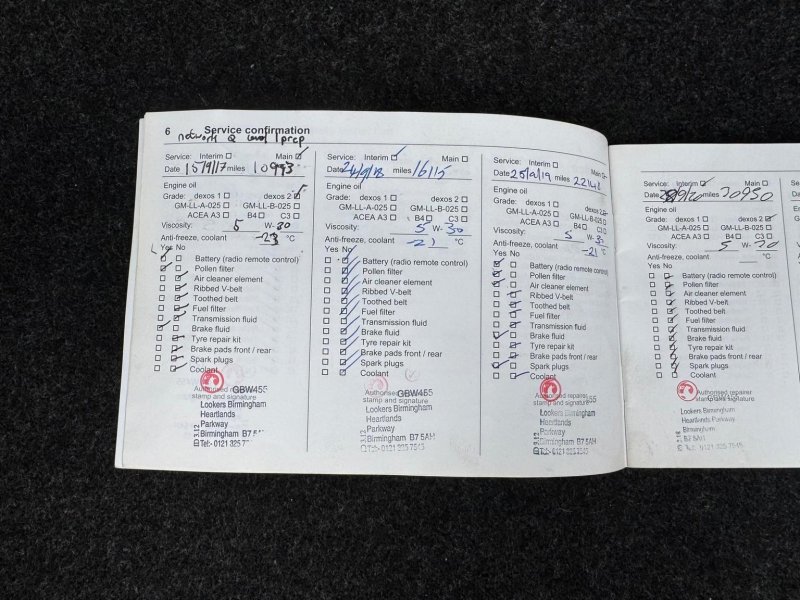 6 Service confirmation
network Q level 1 prep
Service: Interim Main
Date 15/9/17 miles 10993
Engine oil
Grade: dexos 1 dexos 2
GM-LL-A-025 GM-LL-B-025
ACEA A3 B4 C3
Viscosity: 5 W- 30
Anti-freeze, coolant -23 °C
Yes No
Battery (radio remote control)
Pollen filter
Air cleaner element
Ribbed V-belt
Toothed belt
Fuel filter
Transmission fluid
Brake fluid
Tyre repair kit
Brake pads front / rear
Spark plugs
Coolant
Authorised
stamp and signature
GBW455
Lookers Birmingham
Heartlands
Parkway
Birmingham B7
Tel:- 0121 325
Service: Interim Main
Date 24/9/18 miles 16115
Engine oil
Grade: dexos 1 dexos 2
GM-LL-A-025 GM-LL-B-025
ACEA A3 B4 C3
Viscosity: 5 W- 30
Anti-freeze, coolant -21 °C
Yes No
Battery (radio remote control)
Pollen filter
Air cleaner element
Ribbed V-belt
Toothed belt
Fuel filter
Transmission fluid
Brake fluid
Tyre repair kit
Brake pads front / rear
Spark plugs
Coolant
Authorised
stamp and signature
GBW455
Lookers Birmingham
Heartlands
Parkway
Birmingham B7 5AH
Tel:- 0121 325 7545
Service: Interim Main
Date 25/9/19 miles 22148
Engine oil
Grade: dexos 1 dexos 2
GM-LL-A-025 GM-LL-B-025
ACEA A3 B4 C3
Viscosity: 5 W- 30
Anti-freeze, coolant -21 °C
Yes No
Battery (radio remote control)
Pollen filter
Air cleaner element
Ribbed V-belt
Toothed belt
Fuel filter
Transmission fluid
Brake fluid
Tyre repair kit
Brake pads front / rear
Spark plugs
Coolant
Authorised
stamp and signature
Lookers Birmingham
Heartlands
Parkway
Birmingham B7 5AH
Tel:- 0121 325 7545
Service: Interim Main
Date miles 30950
Engine oil
Grade: dexos 1 dexos 2
GM-LL-A-025 GM-LL-B-025
ACEA A3 B4 C3
Viscosity: 5 W-
Anti-freeze, coolant °C
Yes No
Battery (radio remote control)
Pollen filter
Air cleaner element
Ribbed V-belt
Toothed belt
Fuel filter
Transmission fluid
Brake fluid
Tyre repair kit
Brake pads front / rear
Spark plugs
Coolant
Authorised repairer
stamp and signature
Lookers Birmingham
Heartlands
Parkway
Birmingham
B7 5AH
Tel: 0121 325 7545